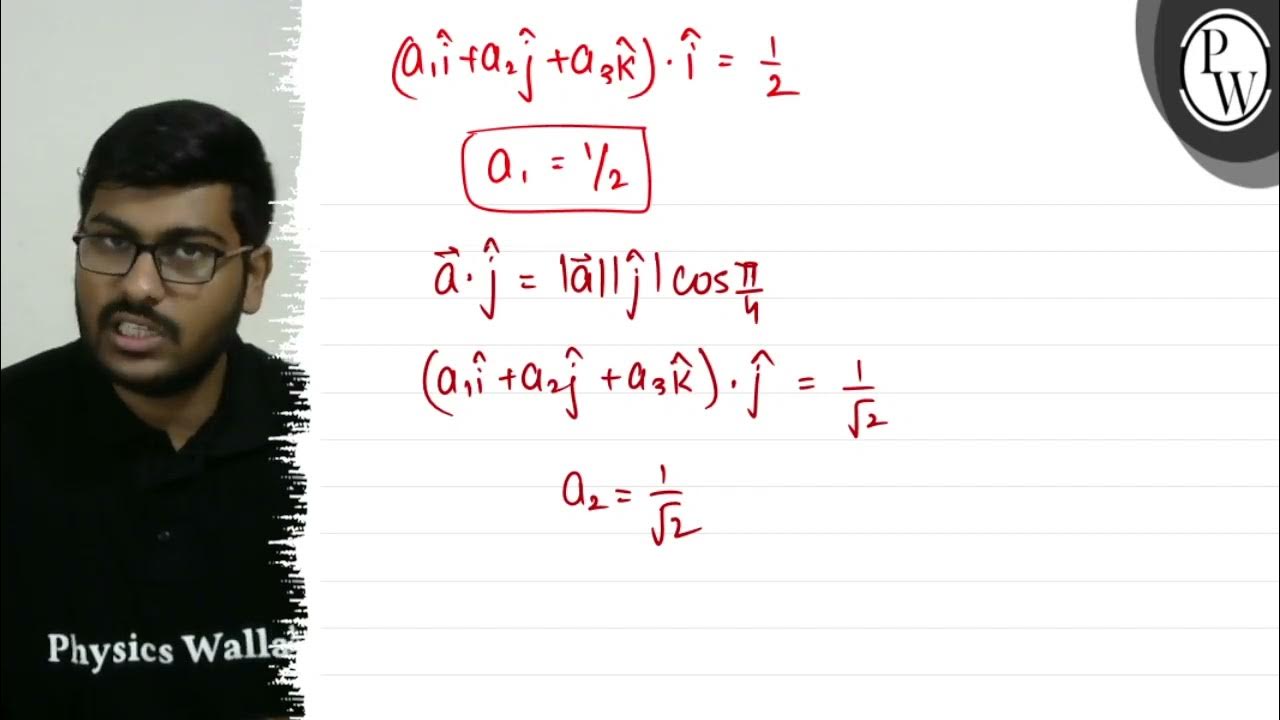 (a₁î + a₂ĵ + a₃k̂) · î = 1/2
a₁ = 1/2
a⃗ · ĵ = |a⃗||ĵ| cos π/4
(a₁î + a₂ĵ + a₃k̂) · ĵ = 1/√2
a₂ = 1/√2
PW
Physics Walla